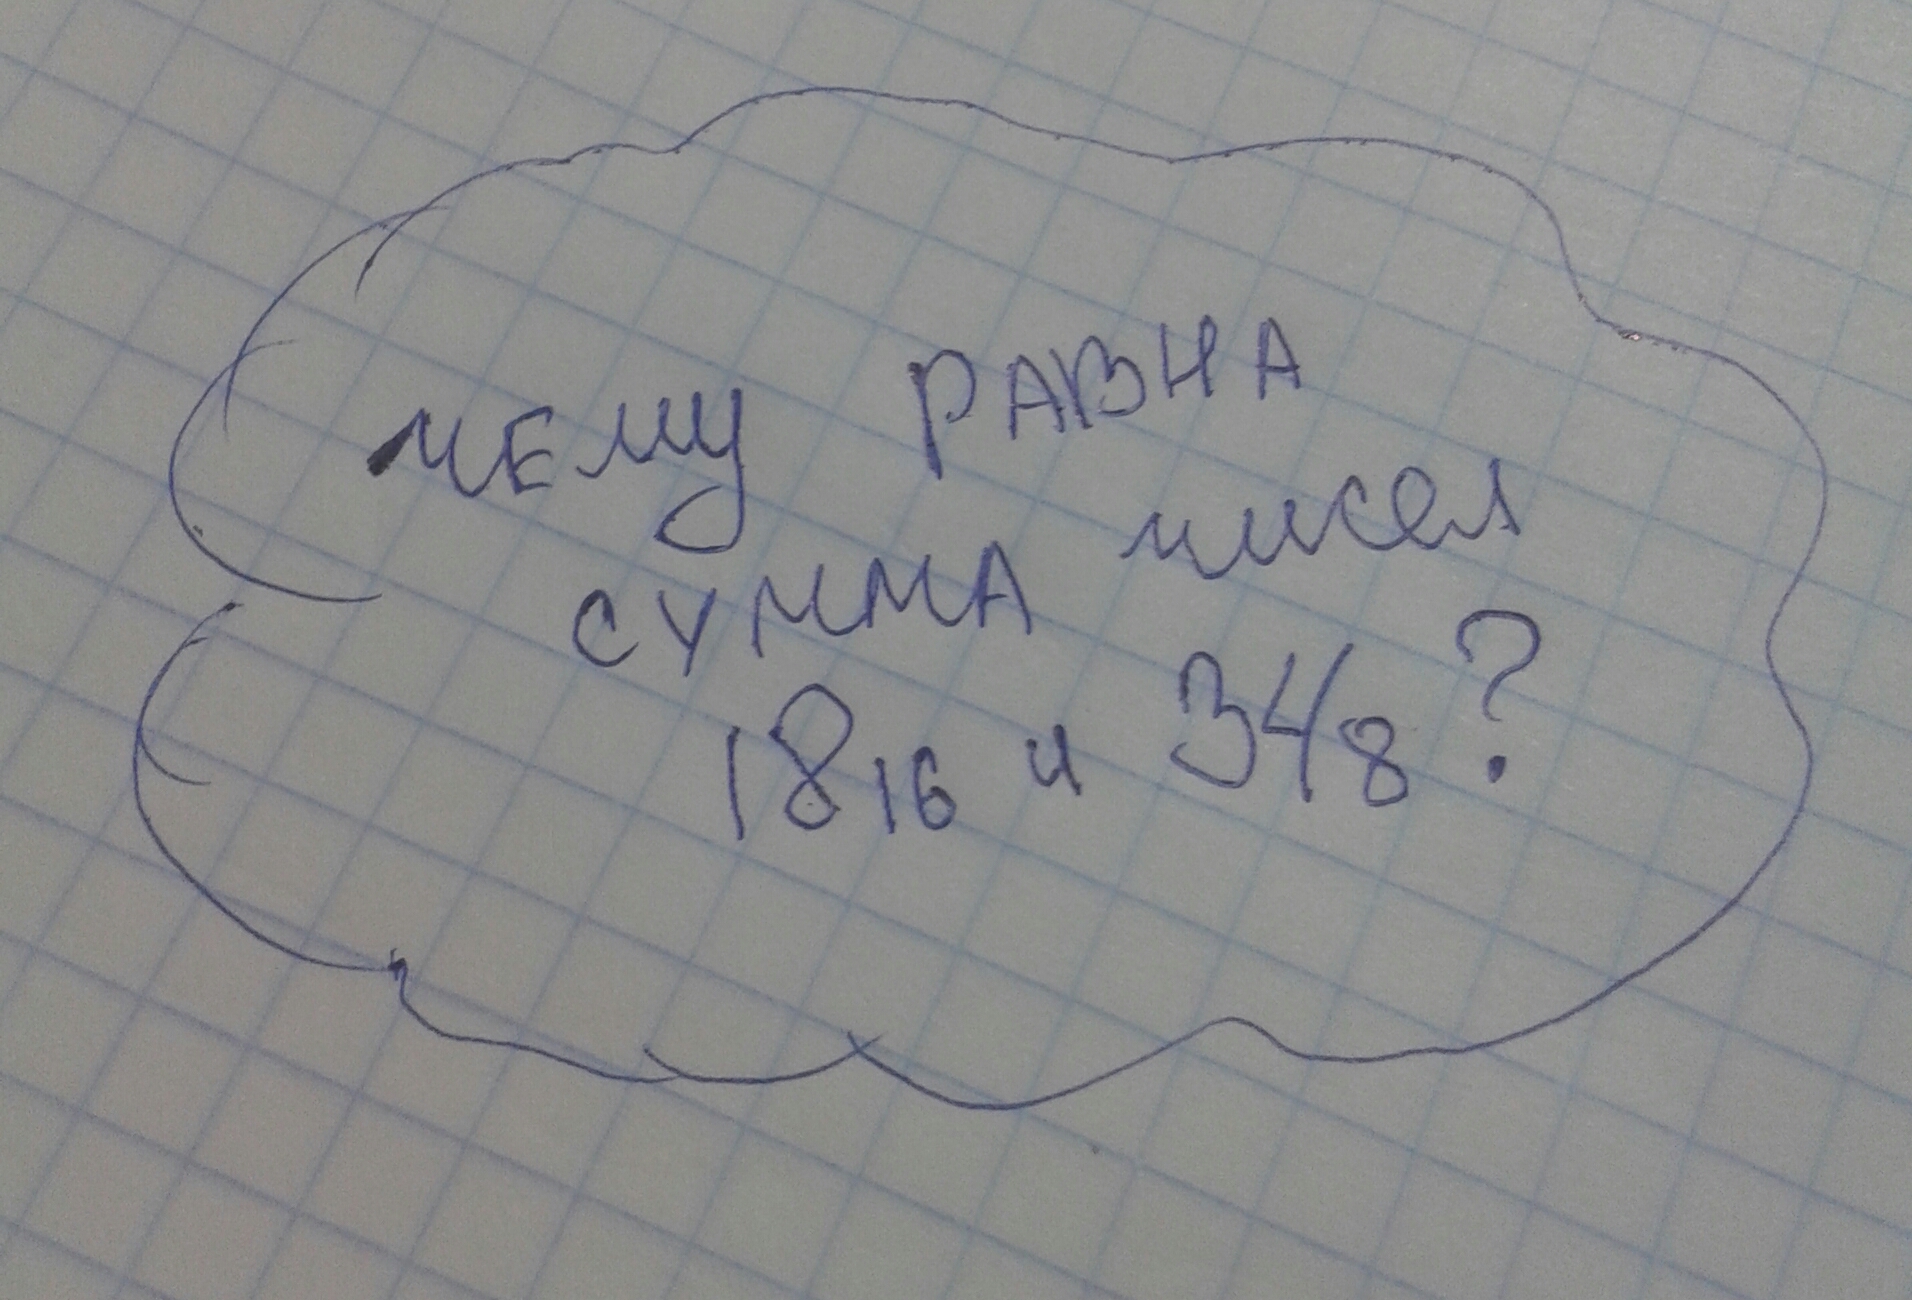 чему РАВНА
СУММА чисел
18₁₆ и 34₈?